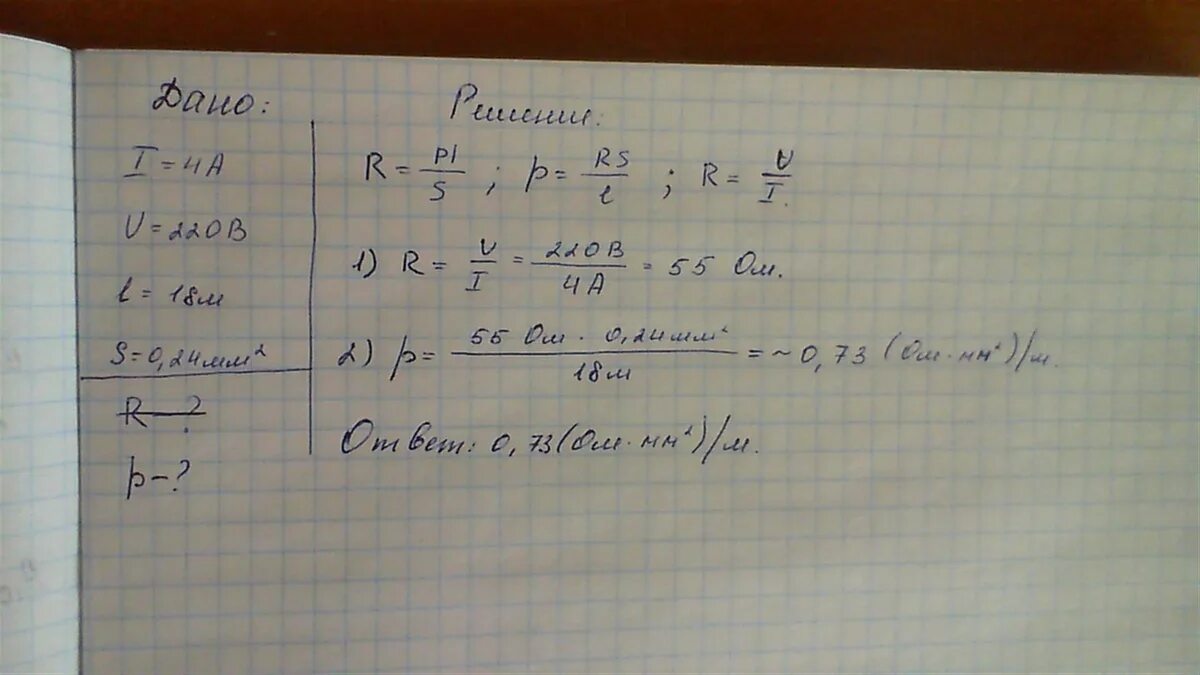 Дано:
I = 4А
U = 220В
l = 18м
S = 0,24мм²
R - ?
p - ?
Решение:
R = pl/S ; p = RS/l ; R = U/I.
1) R = U/I = 220В/4А = 55 Ом.
2) p = 55 Ом · 0,24мм²/18м = ~ 0,73 (Ом·мм²)/м.
Ответ: 0,73(Ом·мм²)/м.